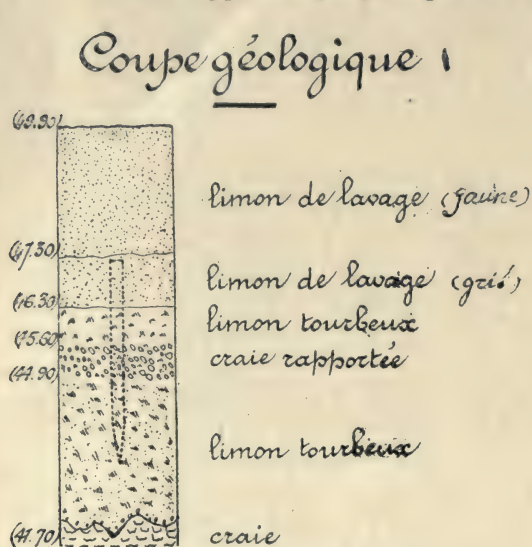 Coupe géologique 1
(49.90)
limon de lavage (jaune)
(47.30)
limon de lavage (gris)
(46.30)
limon tourbeux
(45.60)
craie rapportée
(44.90)
limon tourbeux
(41.70)
craie